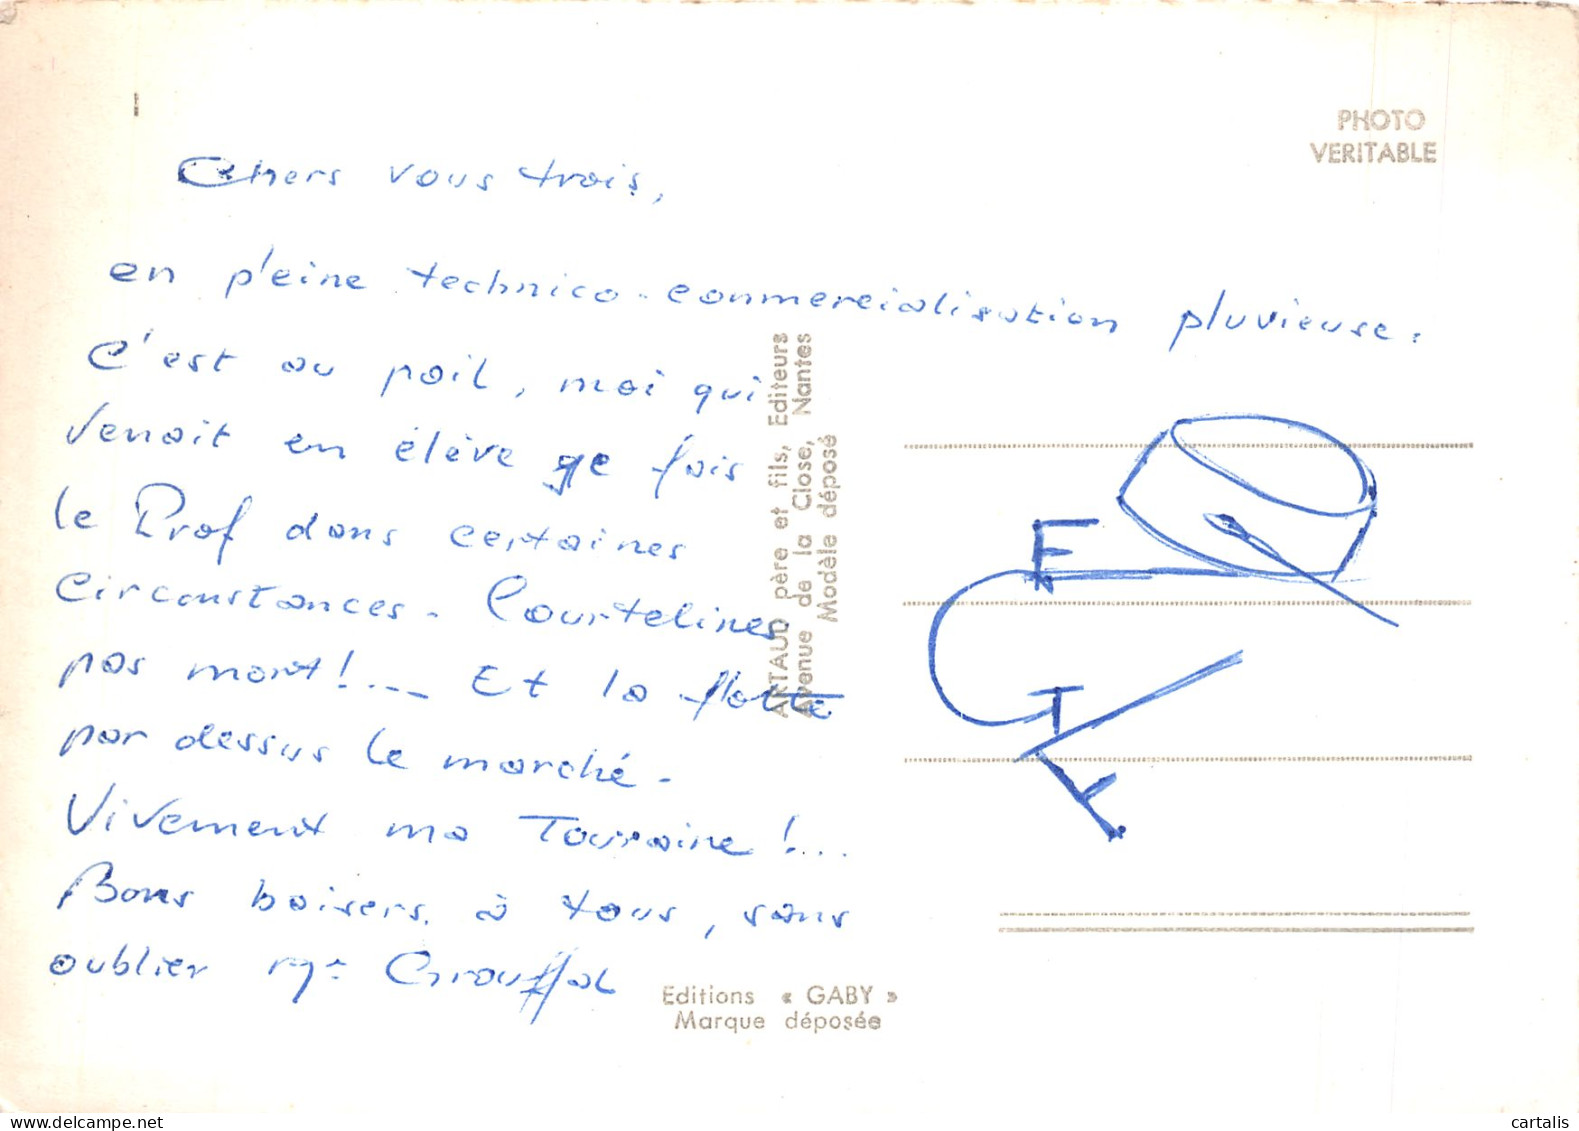 PHOTO
VERITABLE
Chers vous trois,
en pleine technico-conmercialisation pluvieuse.
C'est au poil, moi qui
venait en élève je fais
le Prof dans certaines
circonstances. Courtelines
pas mort!... Et la flotte
par dessus le marché.
Vivement ma Touraine !...
Bons baisers à tous, sans
oublier
ARTAUD père et fils, Editeurs
Avenue de la Close, Nantes
Modèle déposé
Editions « GABY »
Marque déposée
cartalis